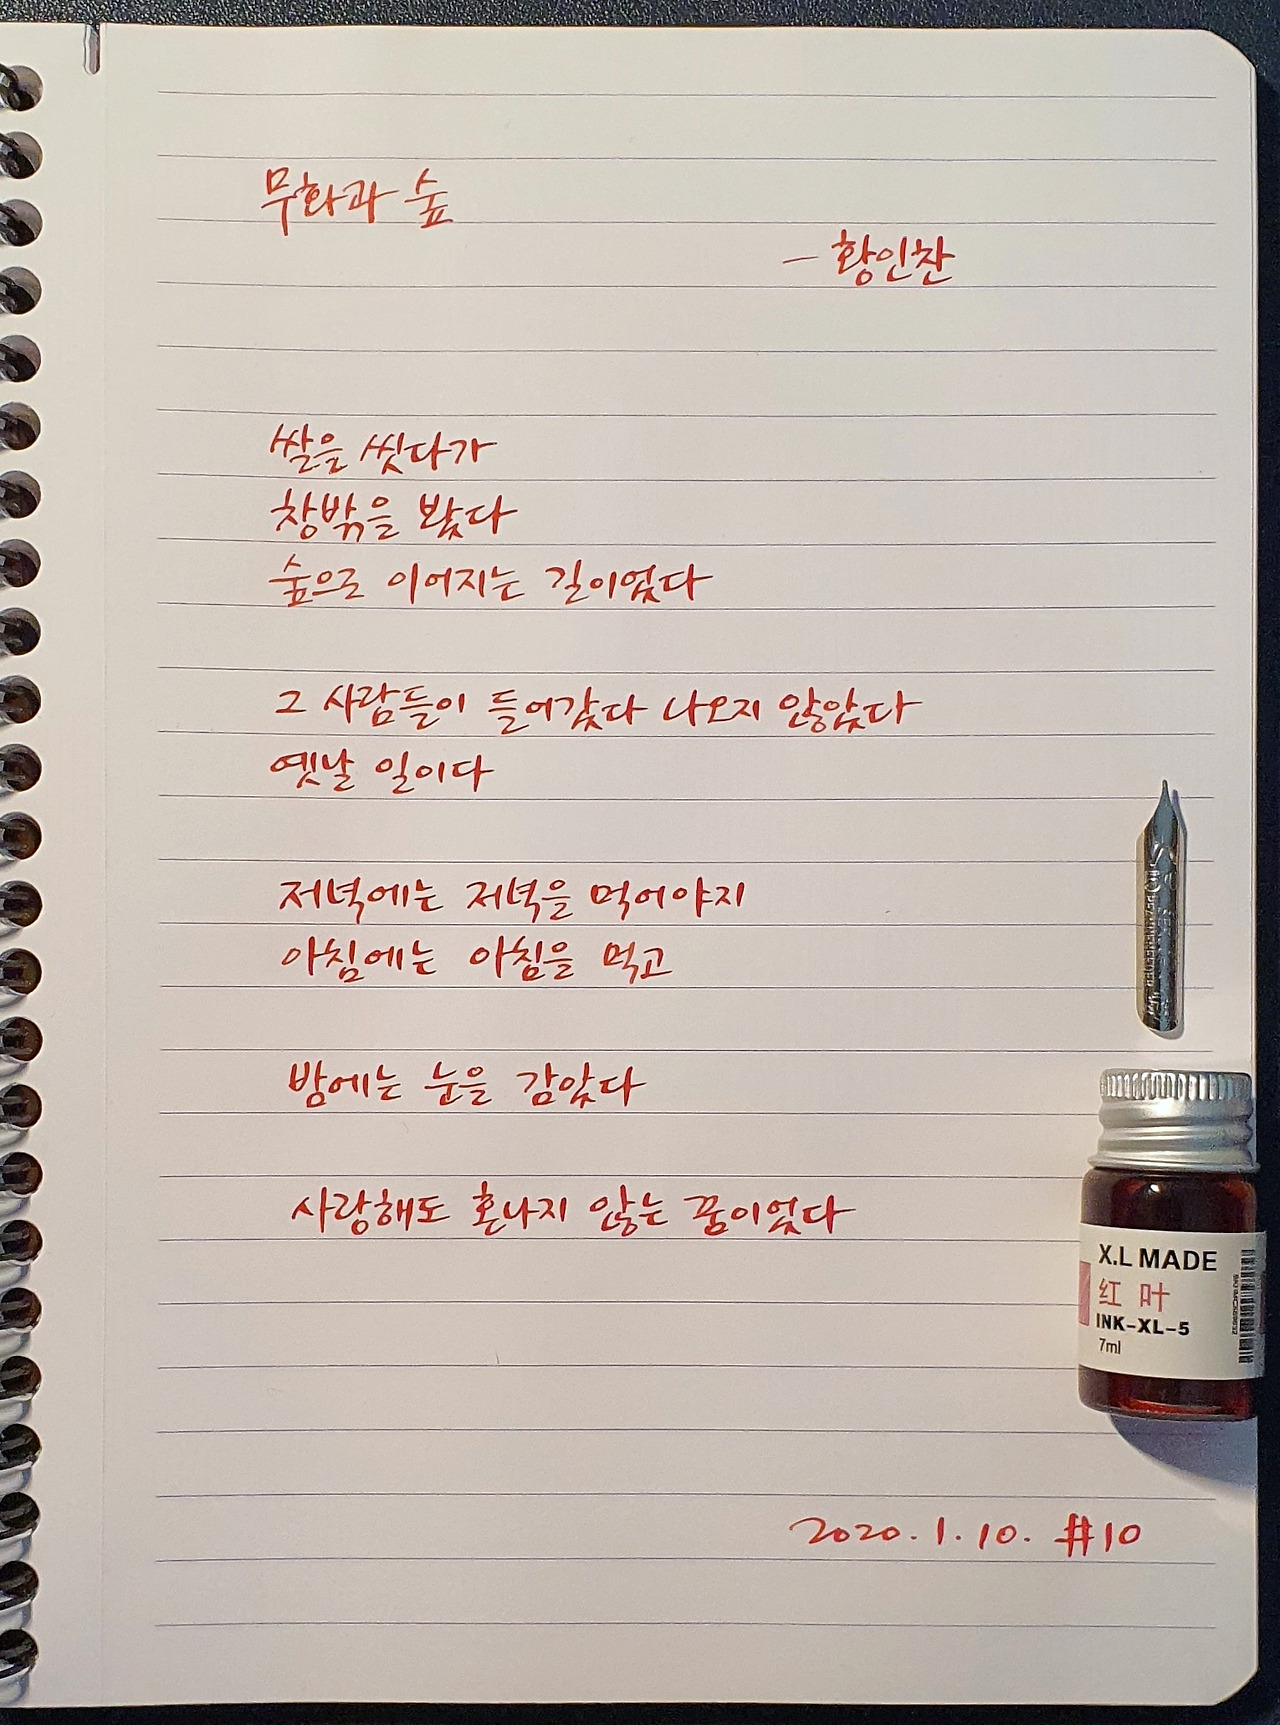 무화과 숲
- 황인찬
쌀을 씻다가
창밖을 봤다
숲으로 이어지는 길이었다
그 사람들이 들어갔다 나오지 않았다
옛날 일이다
저녁에는 저녁을 먹어야지
아침에는 아침을 먹고
밤에는 눈을 감았다
사랑해도 혼나지 않는 꿈이었다
X.L MADE
红叶
INK-XL-5
7ml
2020. 1. 10. #10